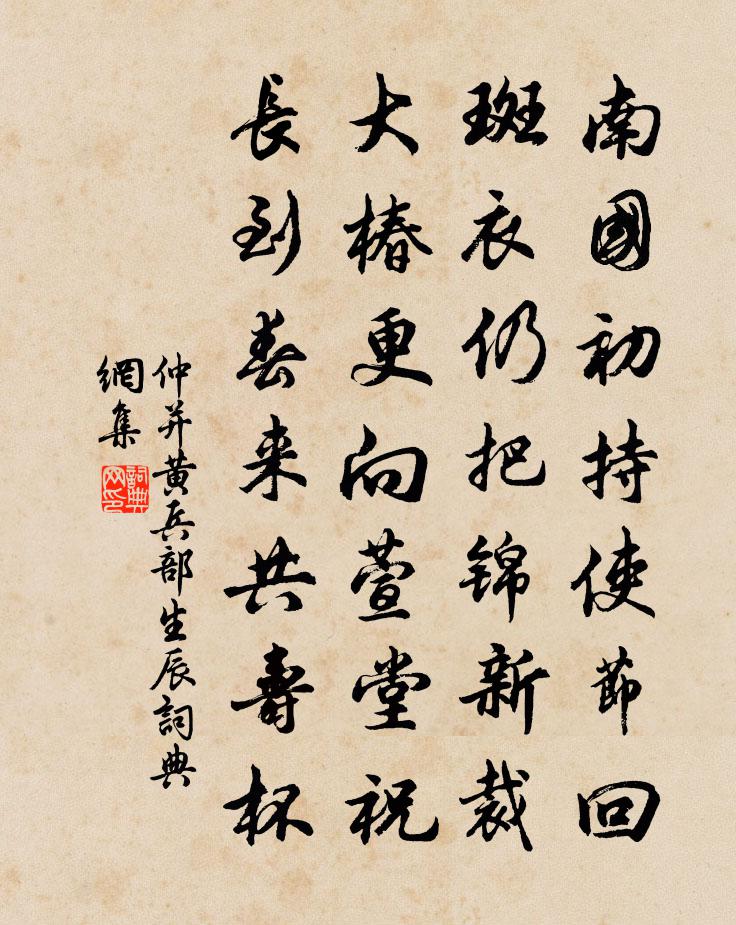 南國初持使節回
斑衣仍把锦新裁
大椿更向萱堂祝
長到春来共壽杯
仲并黄兵部生辰詞典
網集
詞典
网印